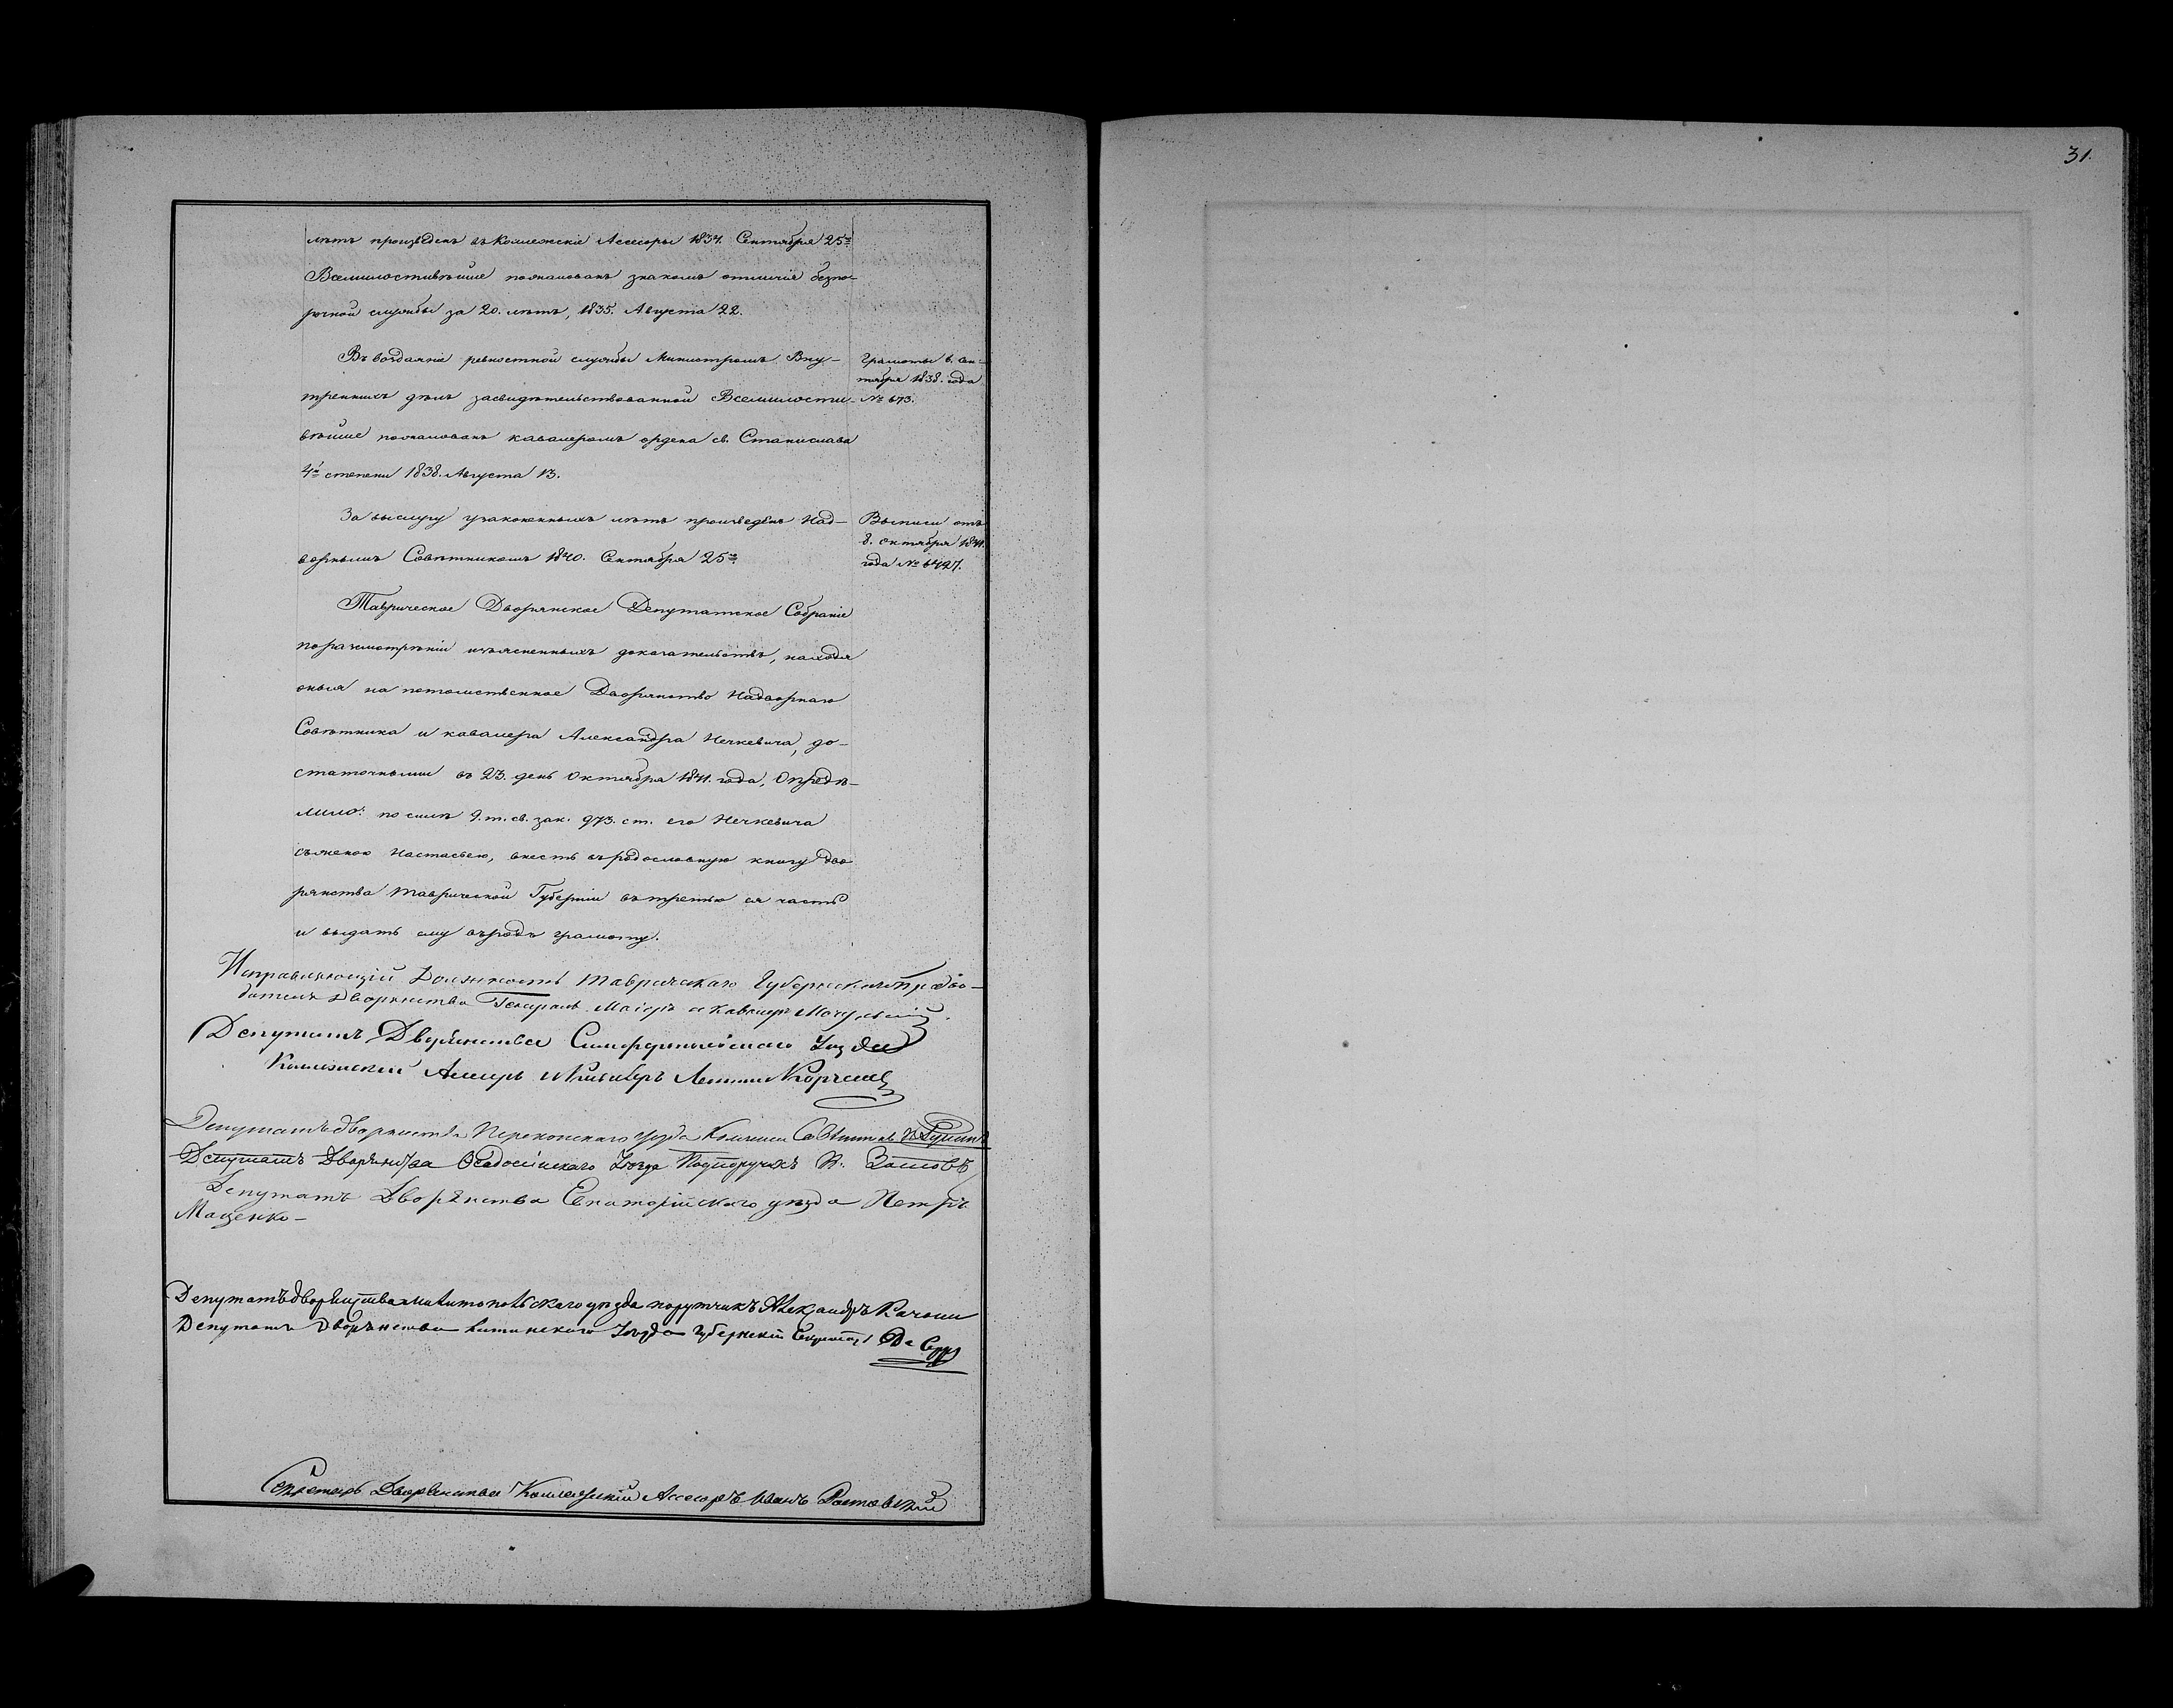 31.
лѣтъ произведенъ въ Коллежскіе Ассесоры 1834. Сентября 25го
Всемилостивѣйше пожалованъ знакомъ отличія безпо-
рочной службы за 20. лѣтъ, 1835. Августа 22.
Въ воздаяніе ревностной службы Министромъ Вну-
треннихъ дѣлъ засвидѣтельствованной Всемилости-
вѣйше пожалованъ кавалеромъ ордена св. Станислава
4й степени 1838. Августа 13.
Грамоты 6. Сен-
тября 1838. года
№ 673.
За выслугу узаконенныхъ лѣтъ произведенъ Над-
ворнымъ Совѣтникомъ 1840. Сентября 25го
Выписи отъ
8. октября 1841.
года № 6427.
Таврическое Дворянское Депутатское Собраніе
по разсмотрѣніи изъясненныхъ доказательствъ, находя
оныя на потомственное Дворянство Надворнаго
Совѣтника и кавалера Александра Нечкевича, до-
статочными въ 23. день Октября 1841. года, Опредѣ-
лило: по силѣ 9. т. св. зак. 973. ст. его Нечкевича
съ женою Настасьею, внесть въ родословную книгу дво
рянства Таврической Губерніи въ третью ея часть
и выдать ему въ родъ грамоту.
Исправляющій Должность Таврическаго Губернскаго Предво-
дителя Дворянства Генералъ Маіоръ и Кавалеръ
Депутатъ Дворянства Симферопольскаго Уѣзда
Коллежскій Ассесоръ и Кавалеръ
Депутатъ дворянства Перекопскаго уѣзда
Депутатъ Дворянства Ѳеодосійскаго Уѣзда Подпоручикъ
Депутатъ Дворянства Евпаторійскаго уѣзда Петръ
Маценко
Депутатъ дворянства мелитопольскаго уѣзда порутчикъ Александръ
Депутатъ Дворянства Ялтинскаго Уѣзда Губернскій
Секретарь Дворянства Коллежскій Ассесоръ Иванъ Ростовскій